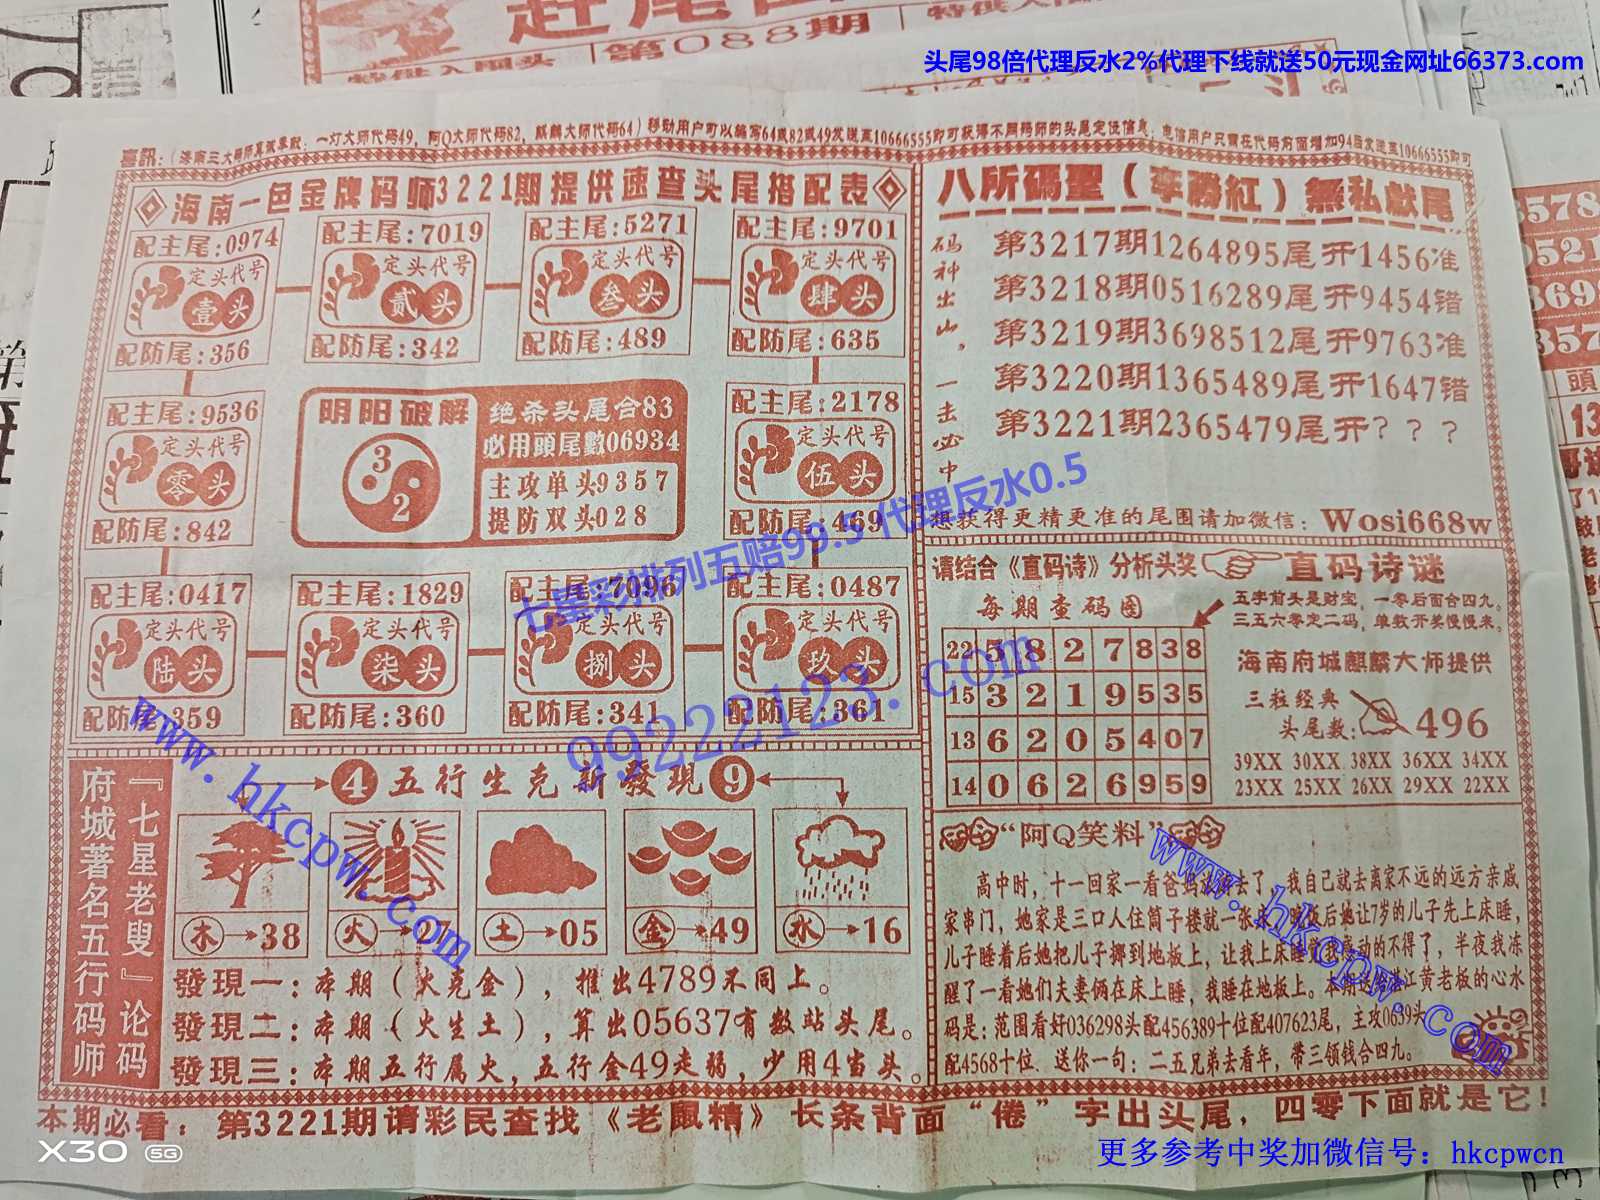 第088期
特供入围头
头尾98倍代理反水2%代理下线就送50元现金网址66373.com
喜訊：（海南三大码师真诚奉献：一灯大师代码49，阿Q大师代码82，麒麟大师代码64）移动用户可以编写64或82或49发送至10666555即可获得不同码师的头尾定位信息；电信用户只需在代码前面增加94后发送至10666555即可
海南一色金牌码师3221期提供速查头尾搭配表
配主尾:0974
定头代号
壹头
配防尾:356
配主尾:7019
定头代号
贰头
配防尾:342
配主尾:5271
定头代号
叁头
配防尾:489
配主尾:9701
定头代号
肆头
配防尾:635
配主尾:9536
定头代号
零头
配防尾:842
阴阳破解
3
2
绝杀头尾合83
必用頭尾數06934
主攻单头9357
提防双头028
配主尾:2178
定头代号
伍头
配防尾:469
配主尾:0417
定头代号
陆头
配防尾:359
配主尾:1829
定头代号
柒头
配防尾:360
配主尾:7096
定头代号
捌头
配防尾:341
配主尾:0487
定头代号
玖头
配防尾:361
八所碼聖（李勝紅）無私獻尾
码神出山，一击必中
第3217期1264895尾开1456准
第3218期0516289尾开9454错
第3219期3698512尾开9763准
第3220期1365489尾开1647错
第3221期2365479尾开？？？
想获得更精更准的尾围请加微信：Wosi668w
七星彩排列五赔99.5 代理反水0.5
99222123.com
请结合《直码诗》分析头奖
直码诗谜
每期查码图
22 5 8 2 7 8 3 8
15 3 2 1 9 5 3 5
13 6 2 0 5 4 0 7
14 0 6 2 6 9 5 9
五字前头是财宝，一零后面合四九。
三五六零定二码，单数开奖慢慢来。
海南府城麒麟大师提供
三粒经典
头尾数:
496
39XX 30XX 38XX 36XX 34XX
23XX 25XX 26XX 29XX 22XX
『七星老叟』论码
府城著名五行码师
4 五行生克新發現 9
木→38
火→27
土→05
金→49
水→16
發現一：本期（火克金），推出4789不同上。
發現二：本期（火生土），算出05637有数站头尾。
發現三：本期五行属火，五行金49走弱，少用4当头。
“阿Q笑料”
高中时，十一回家一看爸妈 去了，我自己就去离家不远的远方亲戚
家串门，她家是三口人住筒子楼就一张床，晚饭后她让7岁的儿子先上床睡，
儿子睡着后她把儿子挪到地板上，让我上床睡觉我感动的不得了，半夜我冻
醒了一看她们夫妻俩在床上睡，我睡在地板上。本期 湛江黄老板的心水
码是：范围看好036298头配456389十位配407623尾，主攻0639头
配4568十位．送你一句：二五兄弟去看年，带三领钱合四九。
www.hkcpw.com
www.hkcpw.com
本期必看：第3221期请彩民查找《老鼠精》长条背面“倦”字出头尾，四零下面就是它！
X30 5G
更多参考中奖加微信号：hkcpwcn